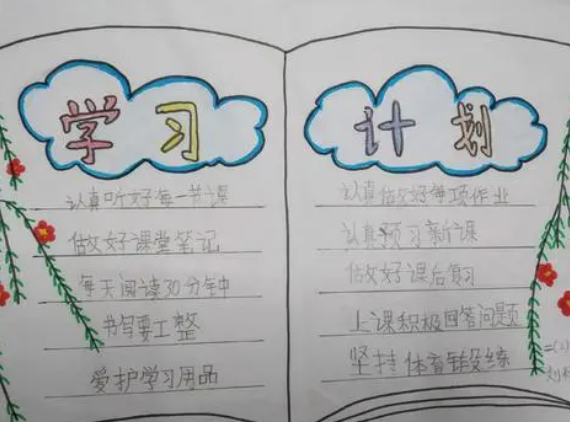 学习
认真听好每一节课
做好课堂笔记
每天阅读30分钟
书写要工整
爱护学习用品
计划
认真做好每项作业
认真预习新课
做好课后复习
上课积极回答问题
坚持体育锻练